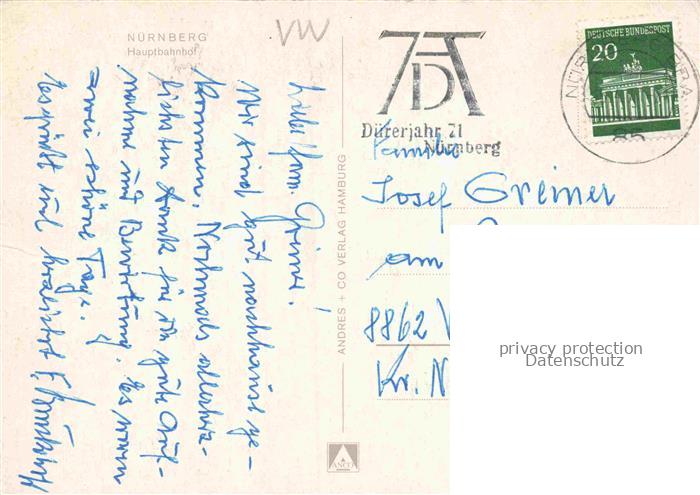 NÜRNBERG
Hauptbahnhof
VW
Liebe Fam. Greiner!
Wir sind gut nachhause ge-
kommen. Nochmals allerherz-
lichsten Dank für die gute Auf-
nahme und Bewirtung. Es waren
zwei schöne Tage.
Es grüßt und
ANDRES + CO VERLAG HAMBURG
ANCO
AD
Dürerjahr 71
Nürnberg
DEUTSCHE BUNDESPOST
20
85
Familie
Josef Greiner
am
8862
Kr. N
privacy protection
Datenschutz